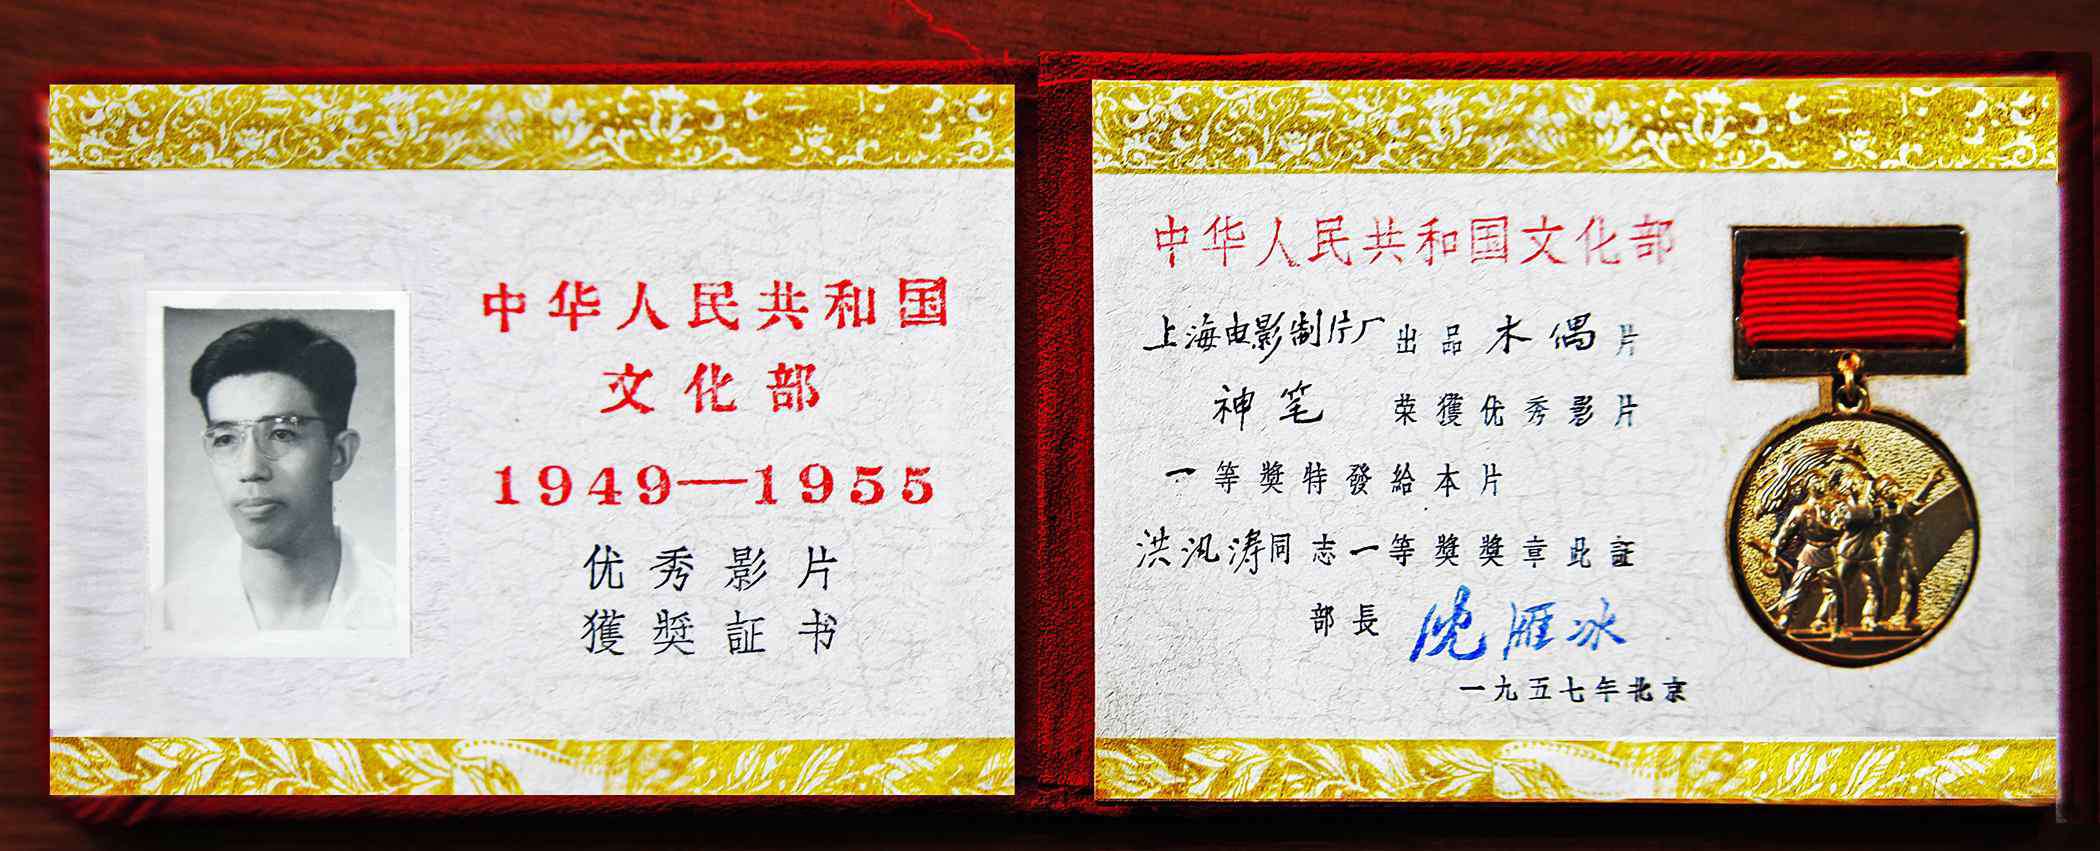 中华人民共和国
文化部
1949—1955
优秀影片
獲奬証书
中华人民共和国文化部
上海电影制片厂出品木偶片
神笔 荣獲优秀影片
一等奬特發給本片
洪汎涛同志一等奬奬章此証
部長 沈雁冰
一九五七年北京